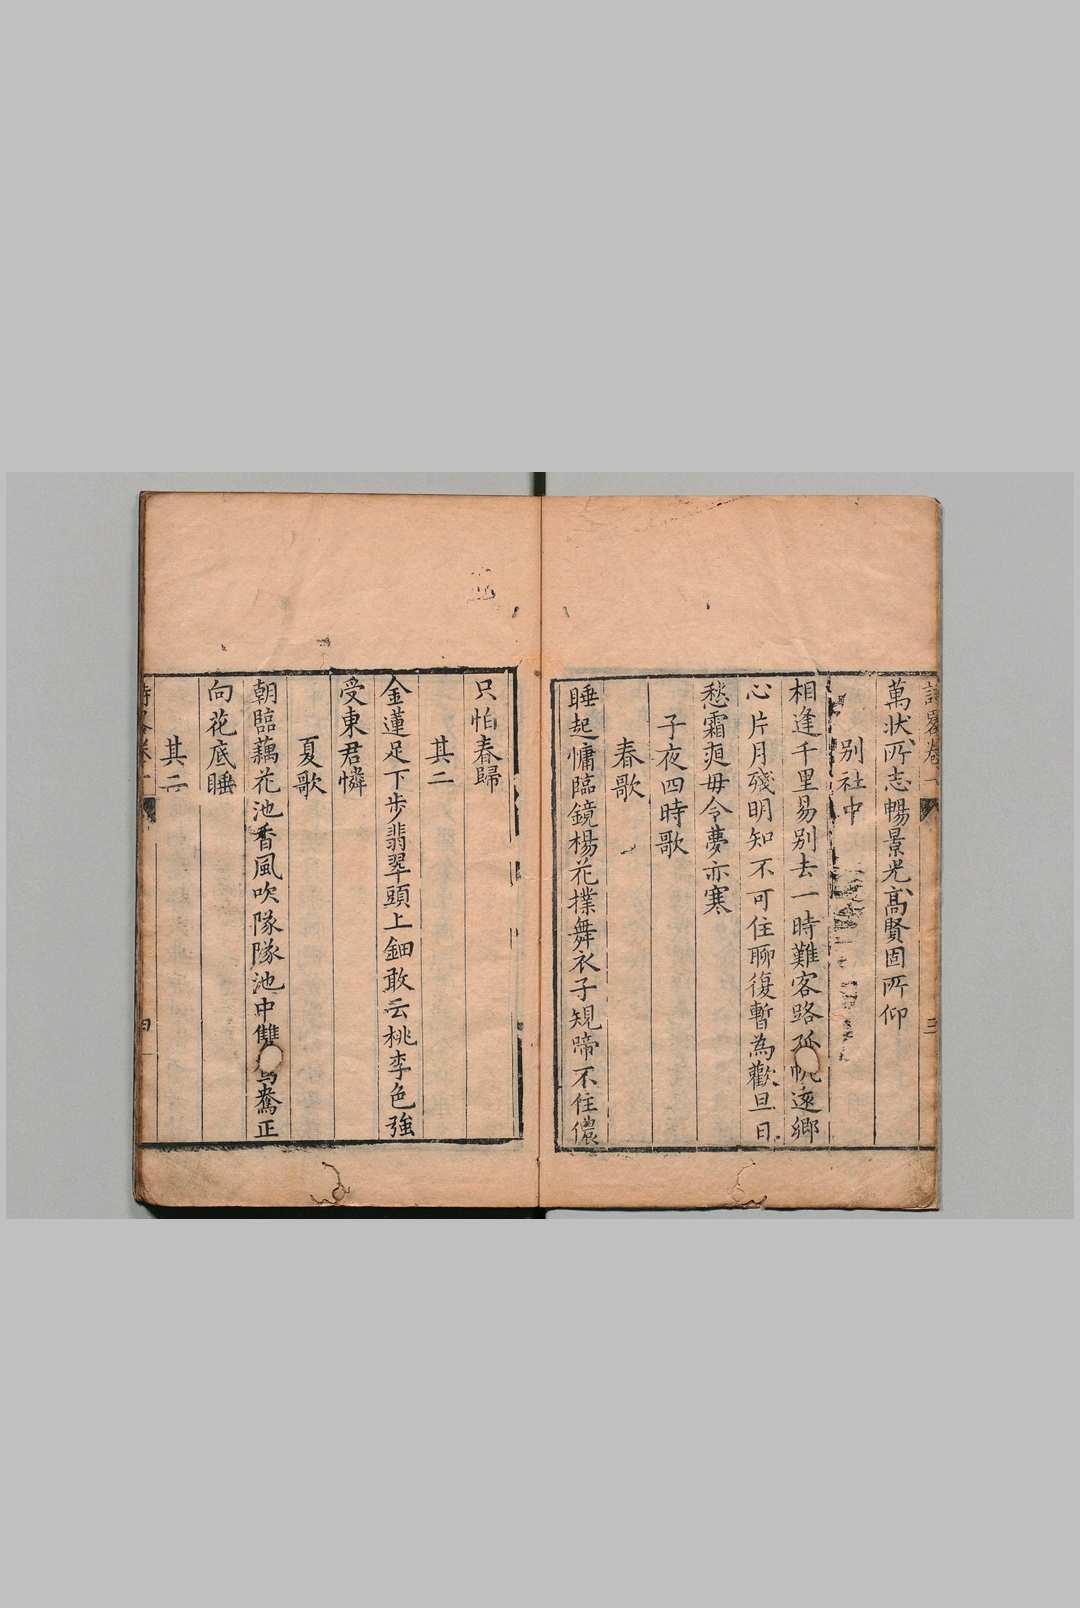 詩畧卷一
三
萬狀所志暢景光高賢固所仰
別社中
相逢千里易別去一時難客路孤帆遠鄉
心片月殘明知不可住聊復暫為歡旦日
愁霜重毋令夢亦寒
子夜四時歌
春歌
睡起慵臨鏡楊花撲舞衣子規啼不住儂
只怕春歸
其二
金蓮足下步翡翠頭上鈿敢云桃李色強
受東君憐
夏歌
朝臨藕花池香風吹隊隊池中雙鴛鴦正
向花底睡
其二
詩畧卷一
四